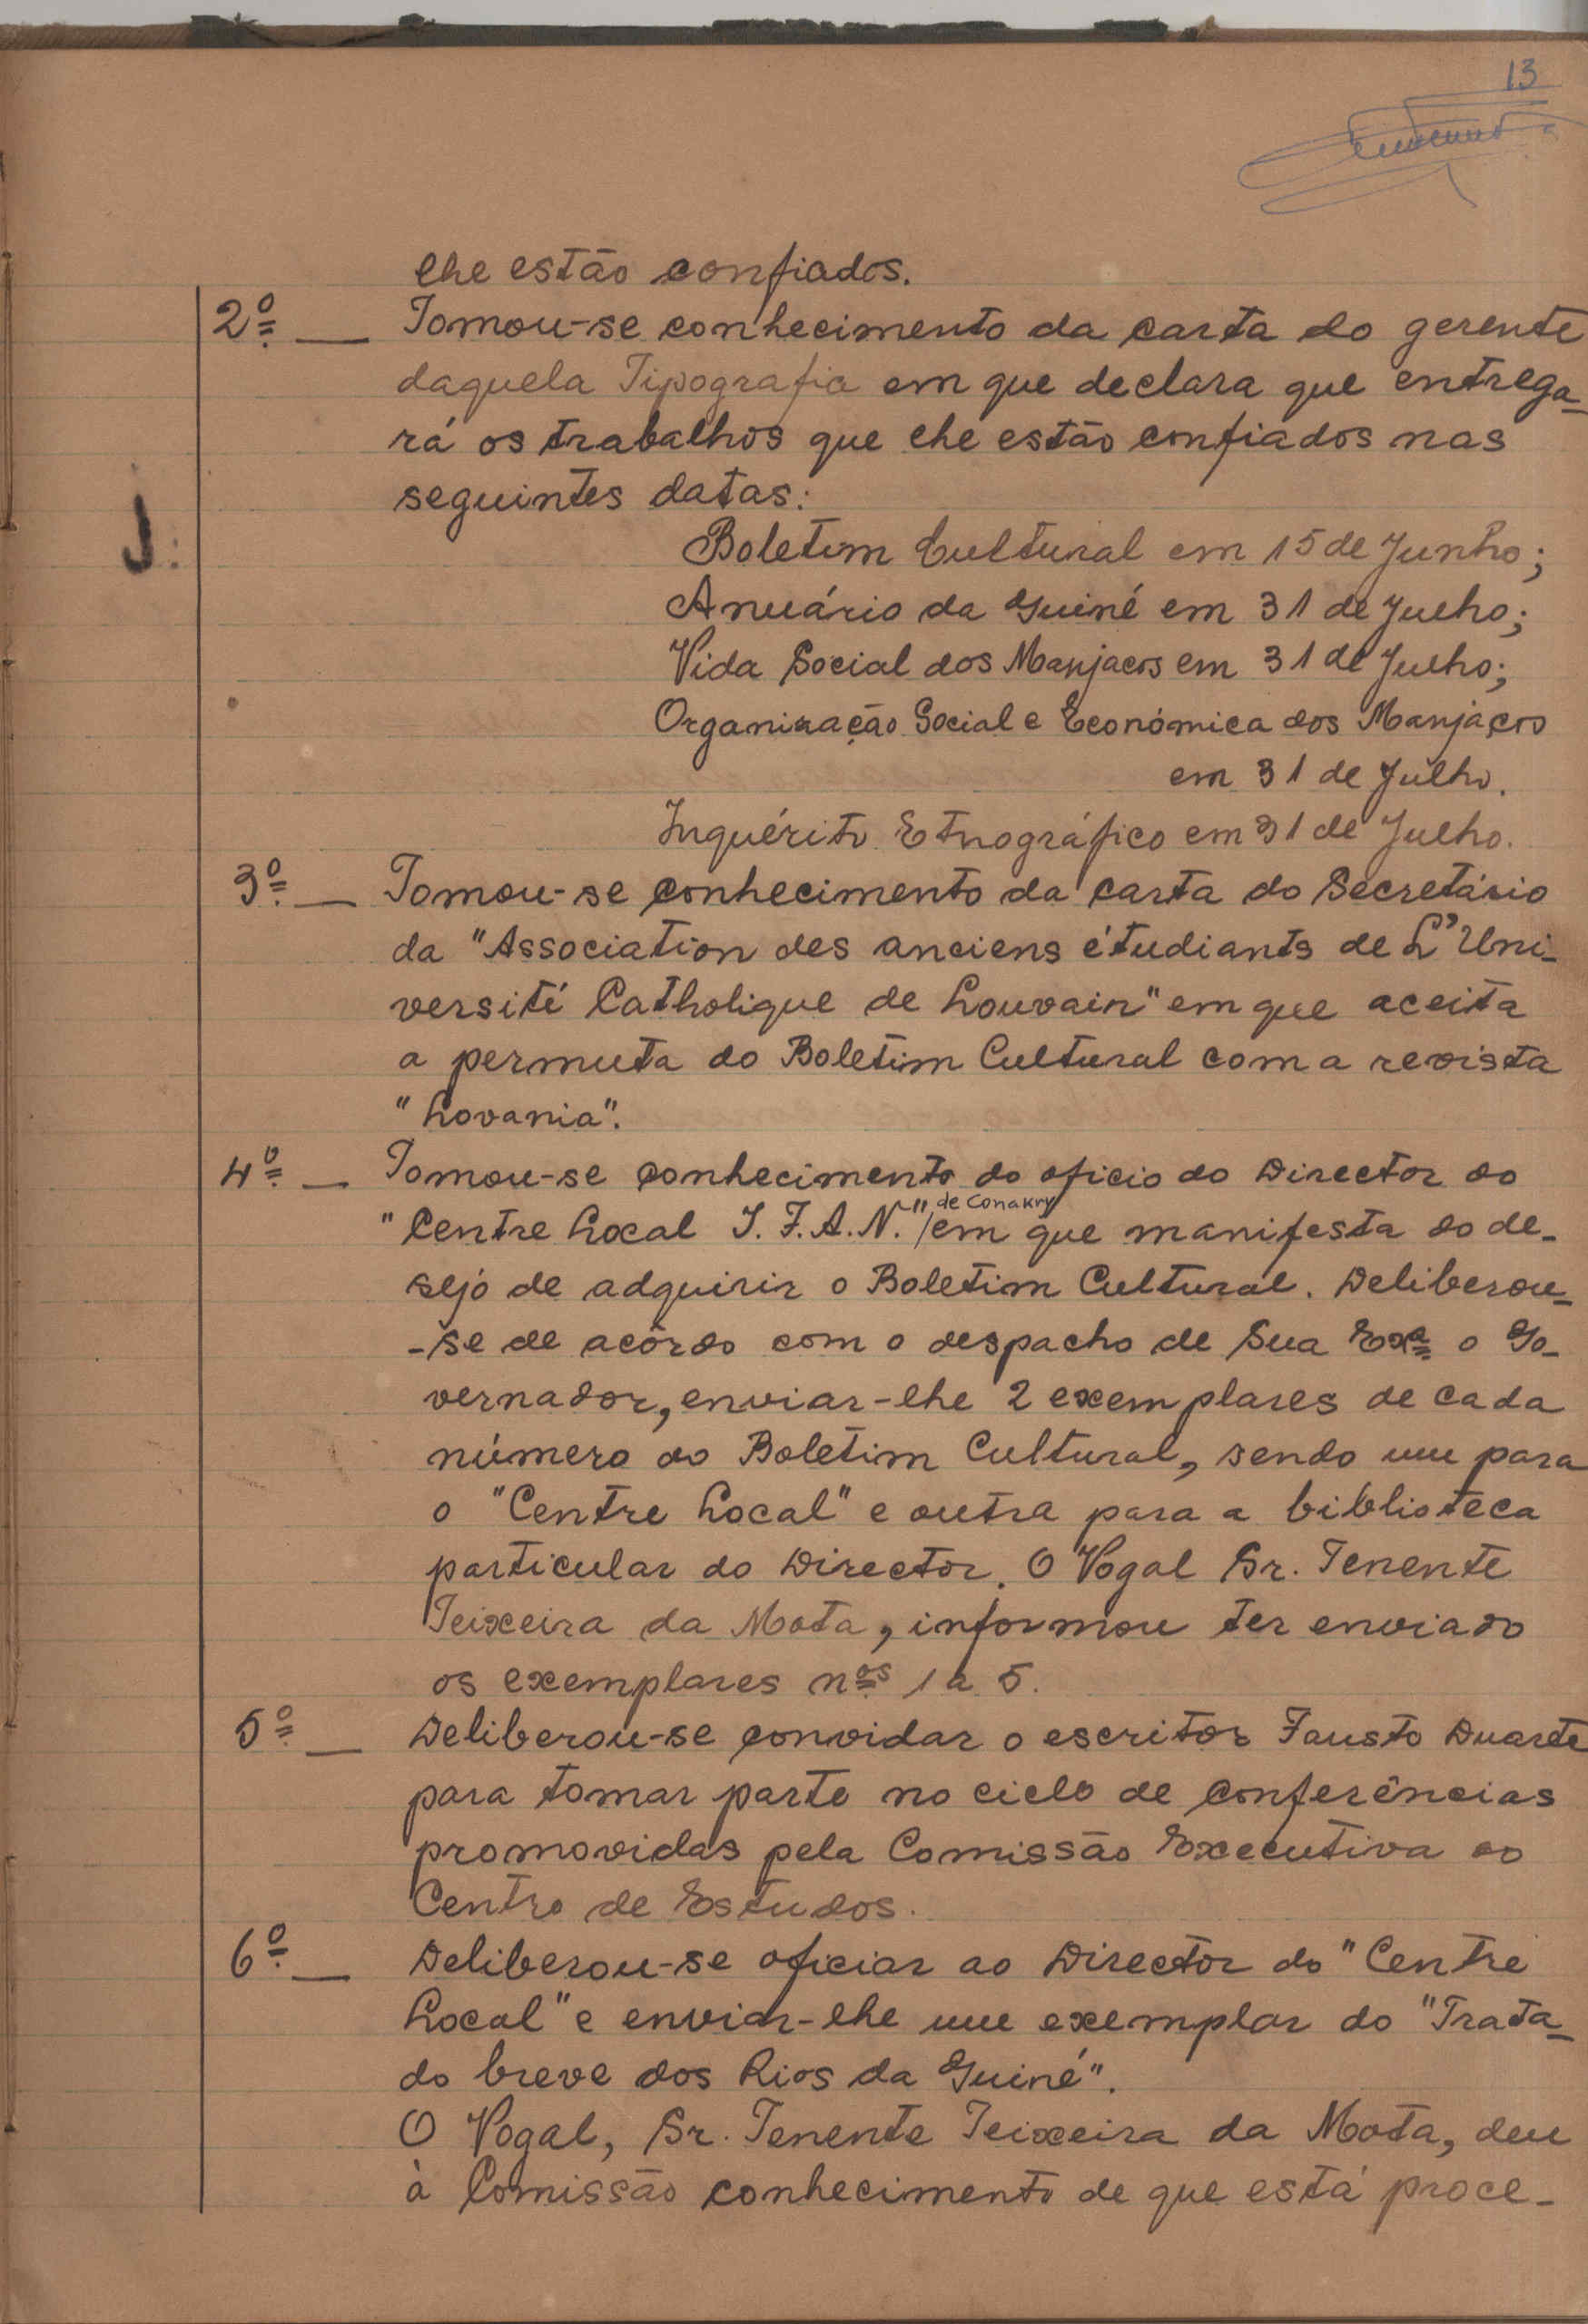 13
lhe estão confiados.
2º — Tomou-se conhecimento da carta do gerente
daquela Tipografia em que declara que entrega-
rá os trabalhos que lhe estão confiados nas
seguintes datas:
J.
Boletim Cultural em 15 de Junho;
Anuário da Guiné em 31 de Julho;
Vida Social dos Manjacos em 31 de Julho;
Organização Social e Económica dos Manjacos
em 31 de Julho.
Inquérito Etnográfico em 31 de Julho.
3º — Tomou-se conhecimento da carta do Secretário
da "Association des anciens étudiants de L'Uni-
versité Catholique de Louvain" em que aceita
a permuta do Boletim Cultural com a revista
"Lovania".
4º — Tomou-se conhecimento do oficio do Director do
"Centre Local I.F.A.N." /de Conakry em que manifesta do de-
sejo de adquirir o Boletim Cultural. Deliberou-
-se de acôrdo com o despacho de Sua Exª o Go-
vernador, enviar-lhe 2 exemplares de cada
número do Boletim Cultural, sendo um para
o "Centre Local" e outra para a biblioteca
particular do Director. O Vogal Sr. Tenente
Teixeira da Mota, informou ter enviado
os exemplares nºs 1 a 5.
5º — Deliberou-se convidar o escritor Fausto Duarte
para tomar parte no ciclo de conferências
promovidas pela Comissão Executiva do
Centro de Estudos.
6º — Deliberou-se oficiar ao Director do "Centre
Local" e enviar-lhe um exemplar do "Trata-
do breve dos Rios da Guiné".
O Vogal, Sr. Tenente Teixeira da Mota, deu
à Comissão conhecimento de que está proce-